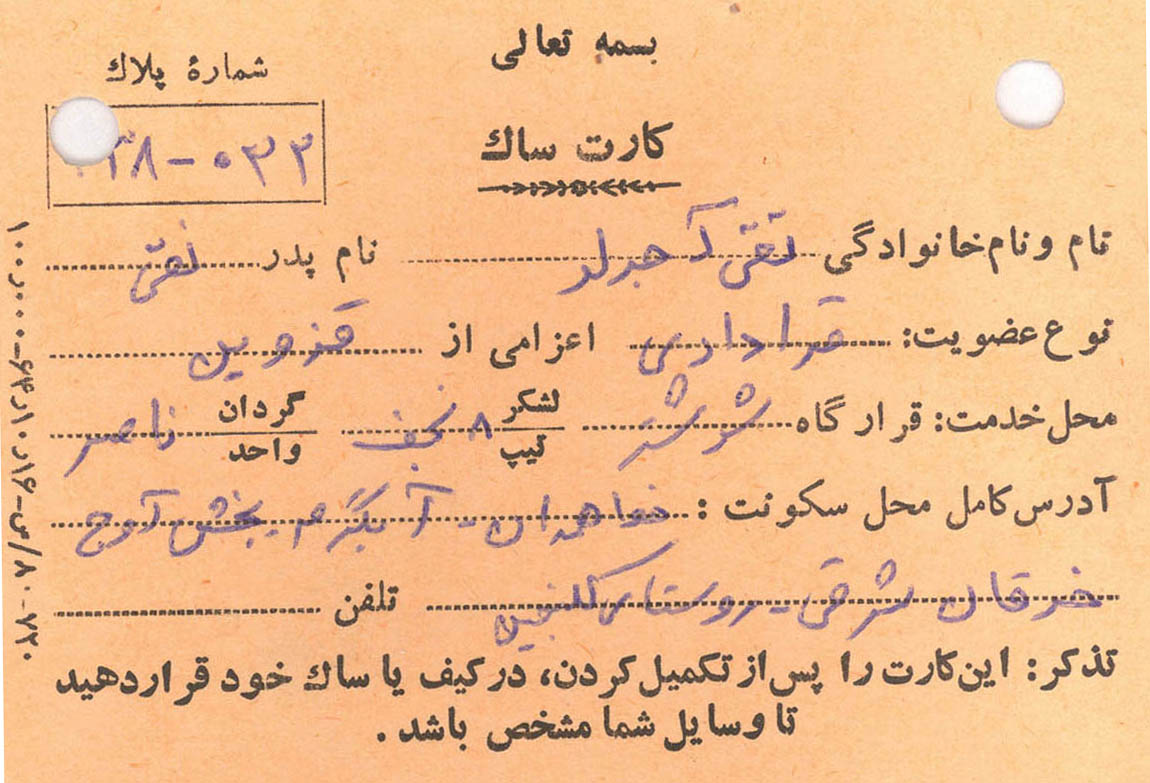 بسمه تعالی
شمارهٔ پلاك
۰۳۳-۳۸
کارت ساك
نام و نام خانوادگی تقی نام پدر نقی
نوع عضویت: قراردادی اعزامی از قزوین
محل خدمت: قرارگاه شوشتر لشکر تیپ ۸ نجف گردان واحد ناصر
آدرس کامل محل سکونت: آبگرم بخش آوج
خرقان شرقی - روستای کلنجین تلفن
تذکر: این کارت را پس از تکمیل کردن، در کیف یا ساك خود قرار دهید
تا وسایل شما مشخص باشد.